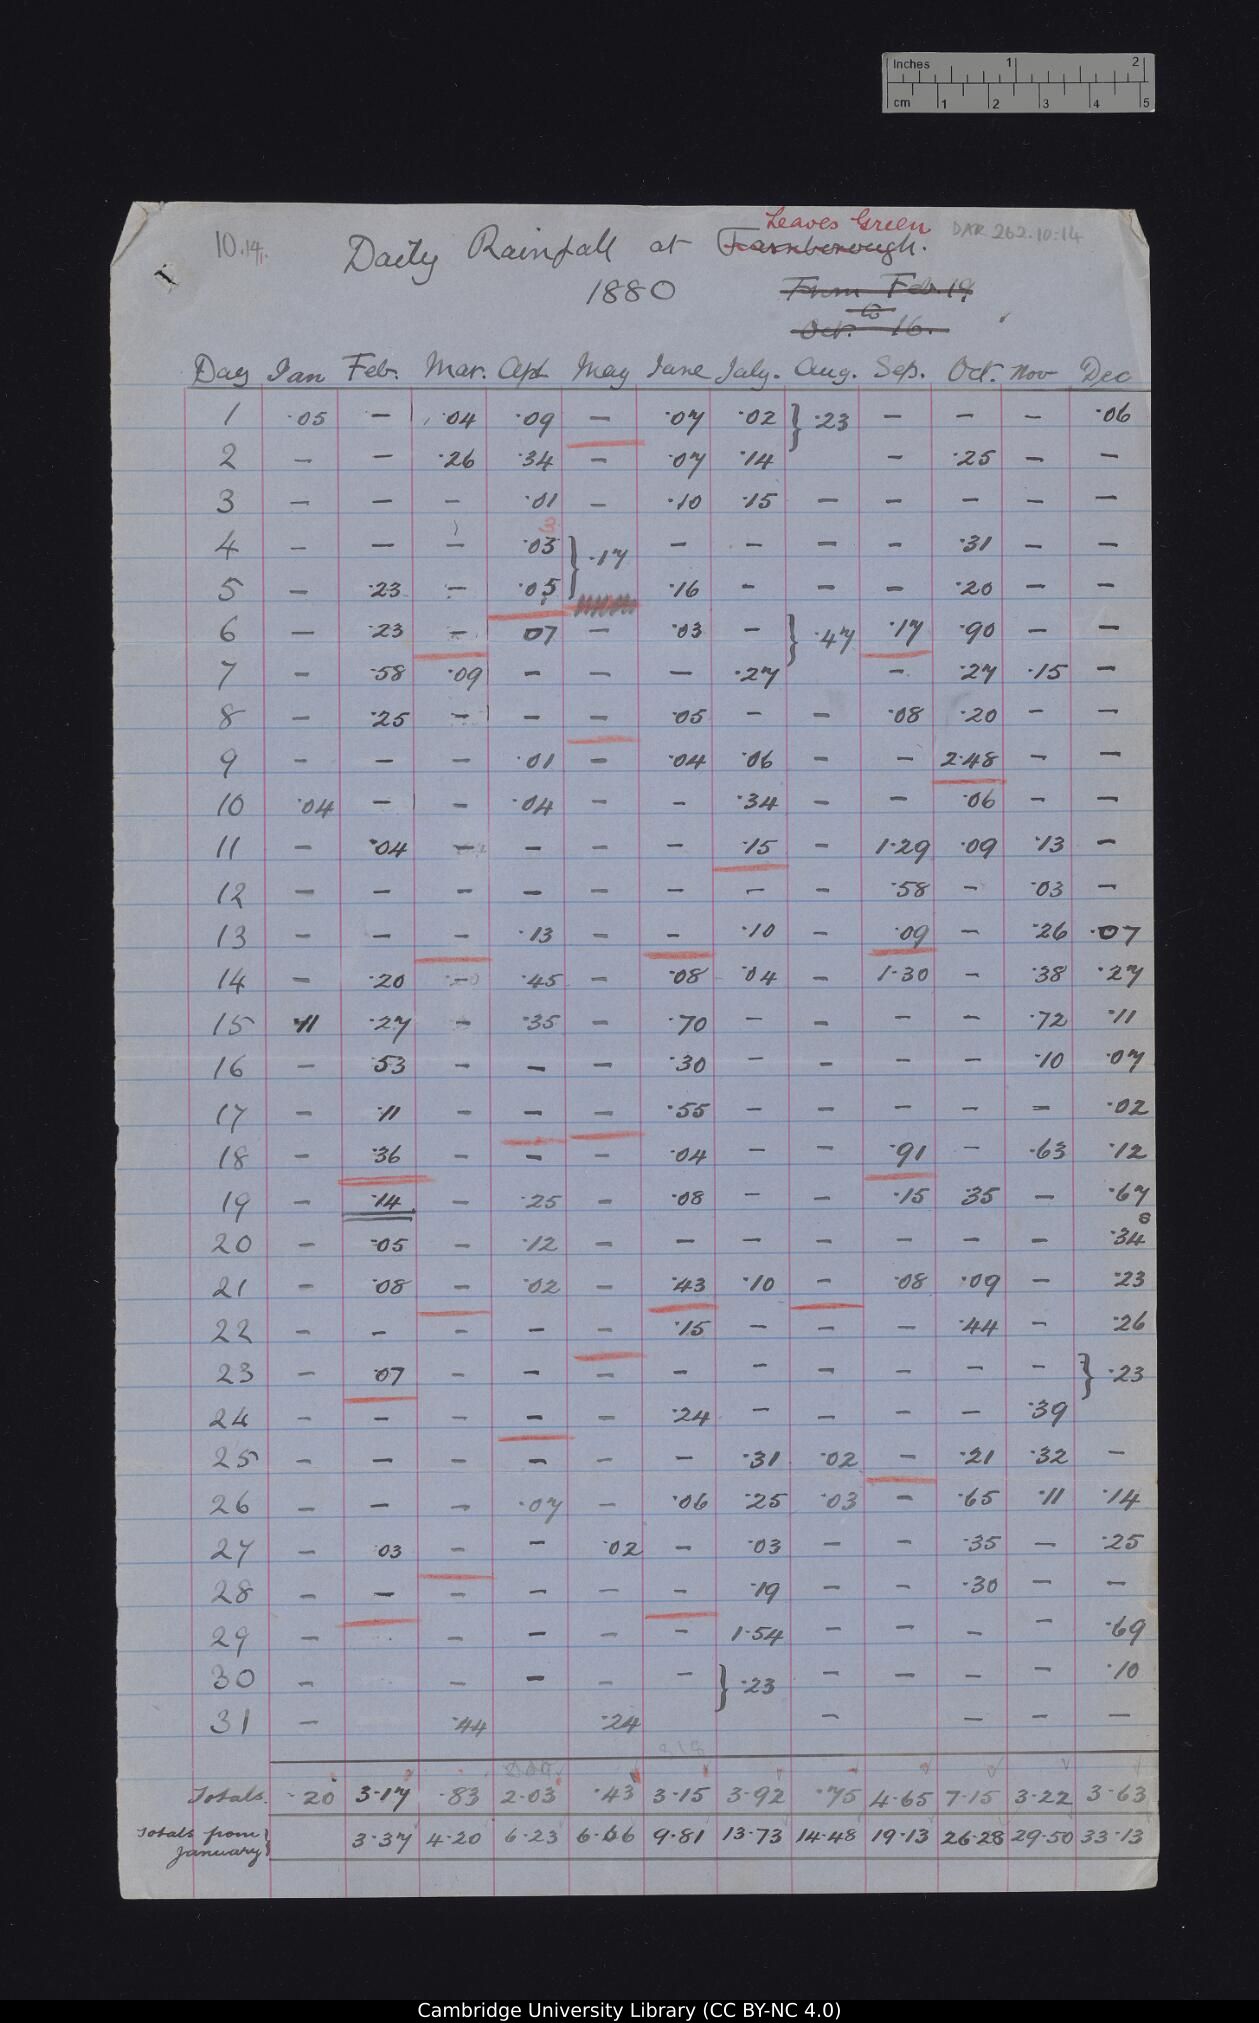 Inches 1 2
cm 1 2 3 4 5
Leaves Green
10.14. Daily Rainfall at Farnborough. DAR 262.10:14
1880 From Feb. 19
to
Oct. 16.
Day Jan Feb. Mar. Apl. May June July. Aug. Sep. Oct. Nov Dec
1 .05 — .04 .09 — .07 .02 } .23 — — — .06
2 — — .26 .34 — .07 .14 — .25 — —
3 — — — .01 — .10 .15 — — — — —
3
4 — — — .03 } .17 — — — — .31 — —
5 — .23 — .05 .16 - — — .20 — —
6 — .23 — 07 — .03 — } .47 .17 .90 — —
7 — .58 .09 — — — .27 — .27 .15 —
8 — .25 — — — .05 — — .08 .20 — —
9 — — — .01 — .04 .06 — — 2.48 — —
10 .04 — — .04 — — .34 — — .06 — —
11 — .04 — — — — .15 — 1.29 .09 .13 —
12 — — — — — — — — .58 — .03 —
13 — — — .13 — — .10 — .09 — .26 .07
14 — .20 — .45 — .08 .04 — 1.30 — .38 .27
15 .11 .27 — .35 — .70 — — — — .72 .11
16 — .53 — — — .30 — — — — .10 .07
17 — .11 — — — .55 — — — — — .02
18 — .36 — — — .04 — — .91 — .63 .12
19 — .14 — .25 — .08 — — .15 .35 — .67
20 — .05 — .12 — — — — — — — .34
21 — .08 — .02 — .43 .10 — .08 .09 — .23
22 — — — — — .15 — — — .44 — .26
23 — .07 — — — — — — — — — } .23
24 — — — — — .24 — — — — .39
25 — — — — — — .31 .02 — .21 .32 —
26 — — — .07 — .06 .25 .03 — .65 .11 .14
27 — .03 — — .02 — .03 — — .35 — .25
28 — — — — — — .19 — — .30 — —
29 — — — — — 1.54 — — — — .69
30 — — — — — } .23 — — — — .10
31 — .44 .24 — — — —
Totals. .20 3.17 .83 2.03 .43 3.15 3.92 .75 4.65 7.15 3.22 3.63
Totals from January } 3.37 4.20 6.23 6.66 9.81 13.73 14.48 19.13 26.28 29.50 33.13
Cambridge University Library (CC BY-NC 4.0)